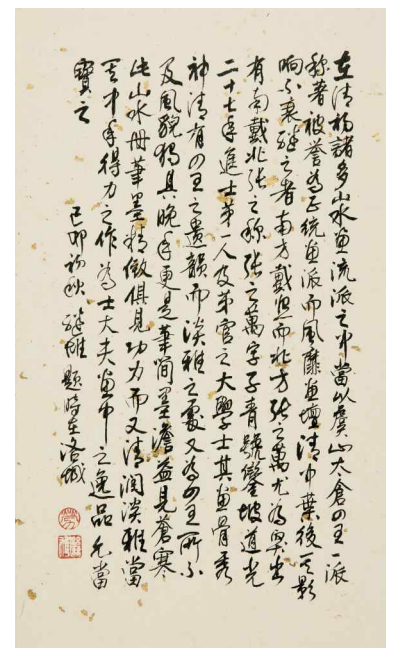 在清初諸多山水畫流派之中當以虞山太倉四王一派
称著被誉為正統畫派而風靡畫壇清中葉後其影
响不衰繼之者南方戴熙而北方張之萬尤為突出
有南戴北張之称張之萬字子青號鑾坡道光
二十七年進士第一人及第官之大學士其畫骨秀
神清有四王之遺韻而淡雅之處又為四王所不
及風貌獨具晚年更是筆簡墨澹益見蒼寒
此山水冊筆墨精微俱見功力而又清润淡雅當
其中年得力之作為士大夫畫中之逸品允當
寶之
己卯初秋 繼雄題時在洛城